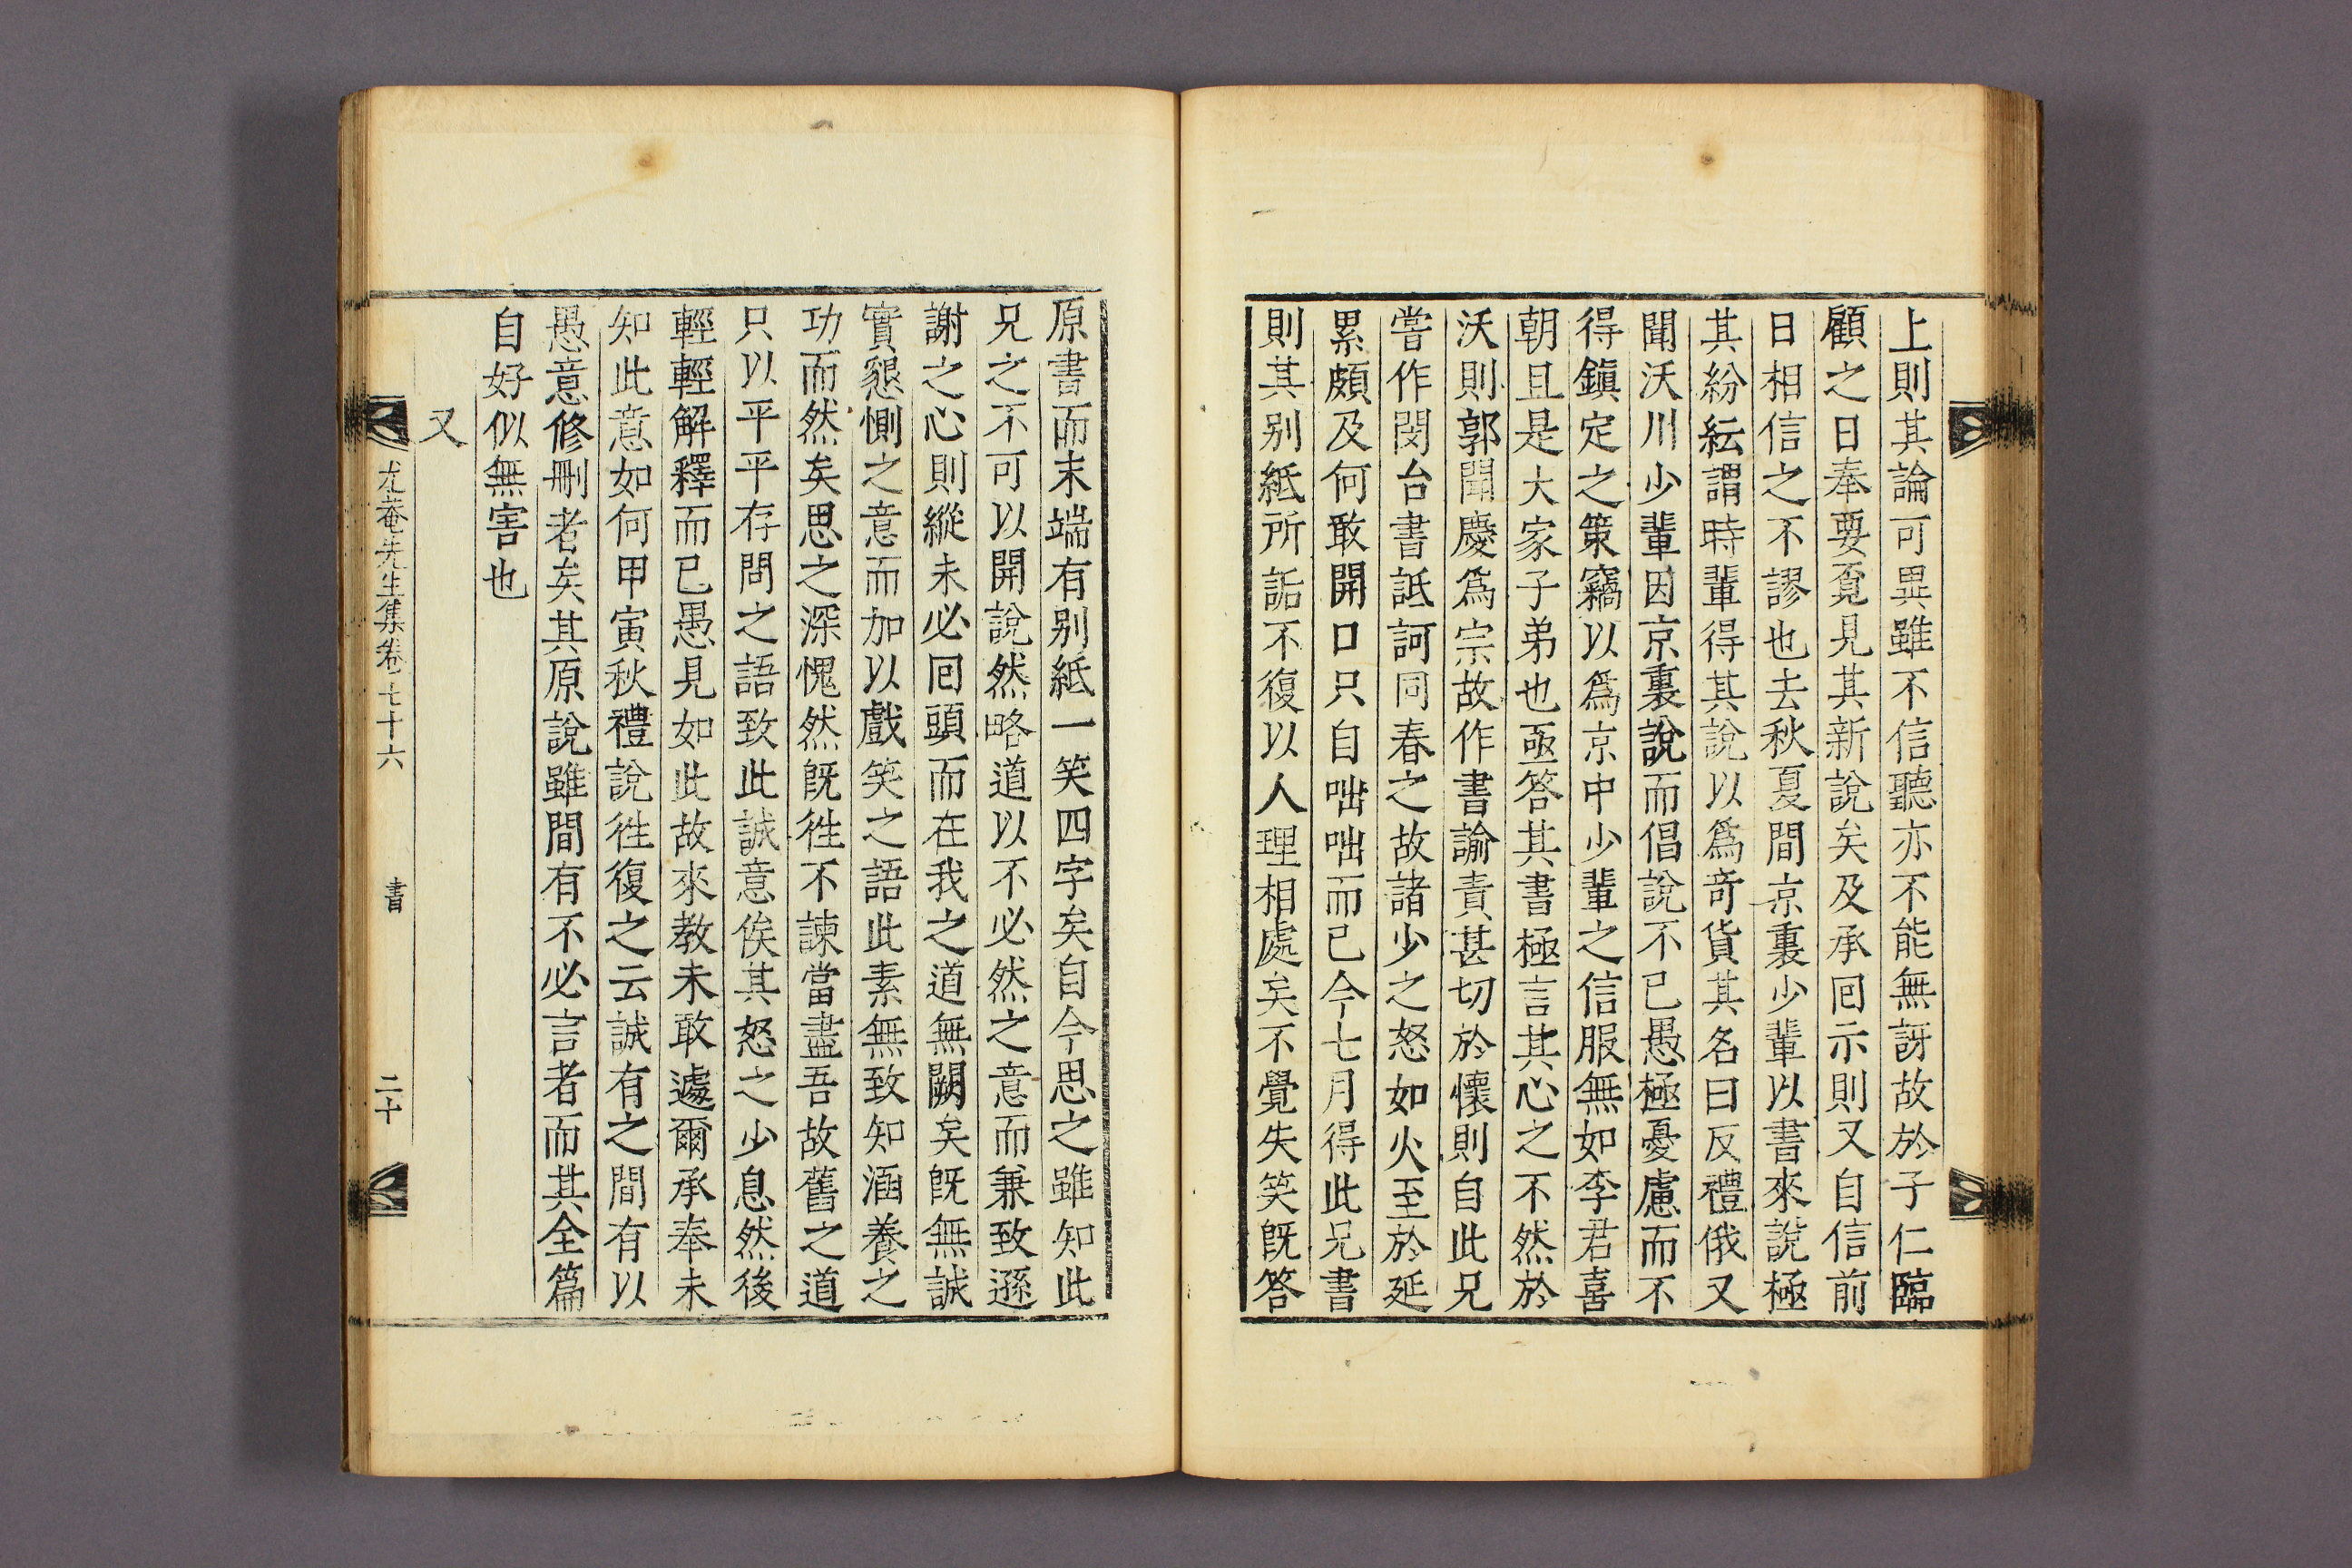 上則其論可異雖不信聽亦不能無訝故於子仁臨
顧之日奉要覔見其新說矣及承回示則又自信前
日相信之不謬也去秋夏間京裏少輩以書來說極
其紛紜謂時輩得其說以爲奇貨其名曰反禮俄又
聞沃川少輩因京裏說而倡說不已愚極憂慮而不
得鎭定之策竊以爲京中少輩之信服無如李君喜
朝且是大家子弟也亟答其書極言其心之不然於
沃則郭聞慶爲宗故作書諭責甚切於懷則自此兄
嘗作閔台書詆訶同春之故諸少之怒如火至於延
累頗及何敢開口只自咄咄而已今七月得此兄書
則其別紙所詬不復以人理相處矣不覺失笑旣答
原書而末端有別紙一笑四字矣自今思之雖知此
兄之不可以開說然略道以不必然之意而兼致遜
謝之心則縱未必回頭而在我之道無闕矣旣無誠
實懇惻之意而加以戲笑之語此素無致知涵養之
功而然矣思之深愧然旣徃不諫當盡吾故舊之道
只以平平存問之語致此誠意俟其怒之少息然後
輕輕解釋而已愚見如此故來教未敢遽爾承奉未
知此意如何甲寅秋禮說徃復之云誠有之間有以
愚意修刪者矣其原說雖間有不必言者而其全篇
自好似無害也
又
尤菴先生集卷七十六
書
二十